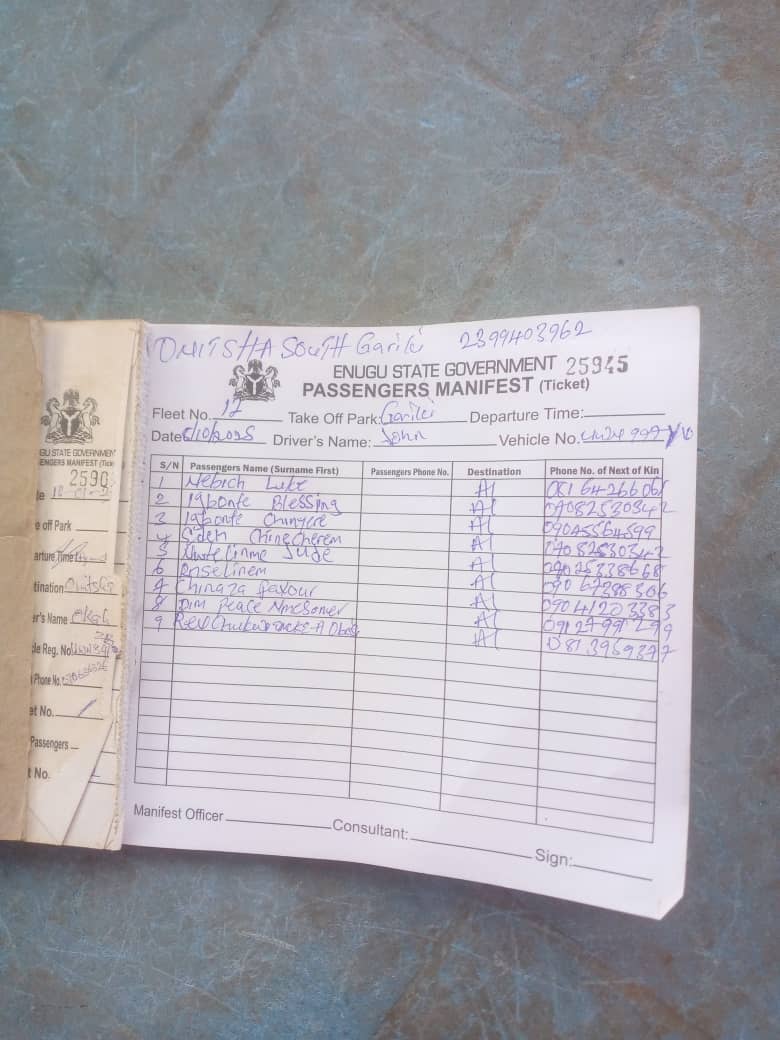 ONITSHA SOUTH Gariki 2399403962
ENUGU STATE GOVERNMENT 25945
PASSENGERS MANIFEST (Ticket)
Fleet No. 12 Take Off Park: Gariki Departure Time:
Date 5/10/2025 Driver's Name: John Vehicle No.
S/N Passengers Name (Surname First) Passengers Phone No. Destination Phone No. of Next of Kin
1 Nebich Luke A1
2 Igbonte Blessing A1 07082530342
3 Igbonte Chinyere A1 09045564599
4 Edeh Chinecherem A1 07082530342
5 Jude A1 09025338668
6 Anselinem A1 09067398306
7 Chinaza favour A1 09041203383
8 Dim Peace Nmesomer A1 09127991299
9 Rev A1 0813959377
Manifest Officer Consultant: Sign:
GU STATE GOVERNMENT
ENGERS MANIFEST (Tick
2590
te
e off Park
arture Time
tination Onitsha
er's Name Okah
le Reg. No.
Phone No.
et No.
Passengers
t No.